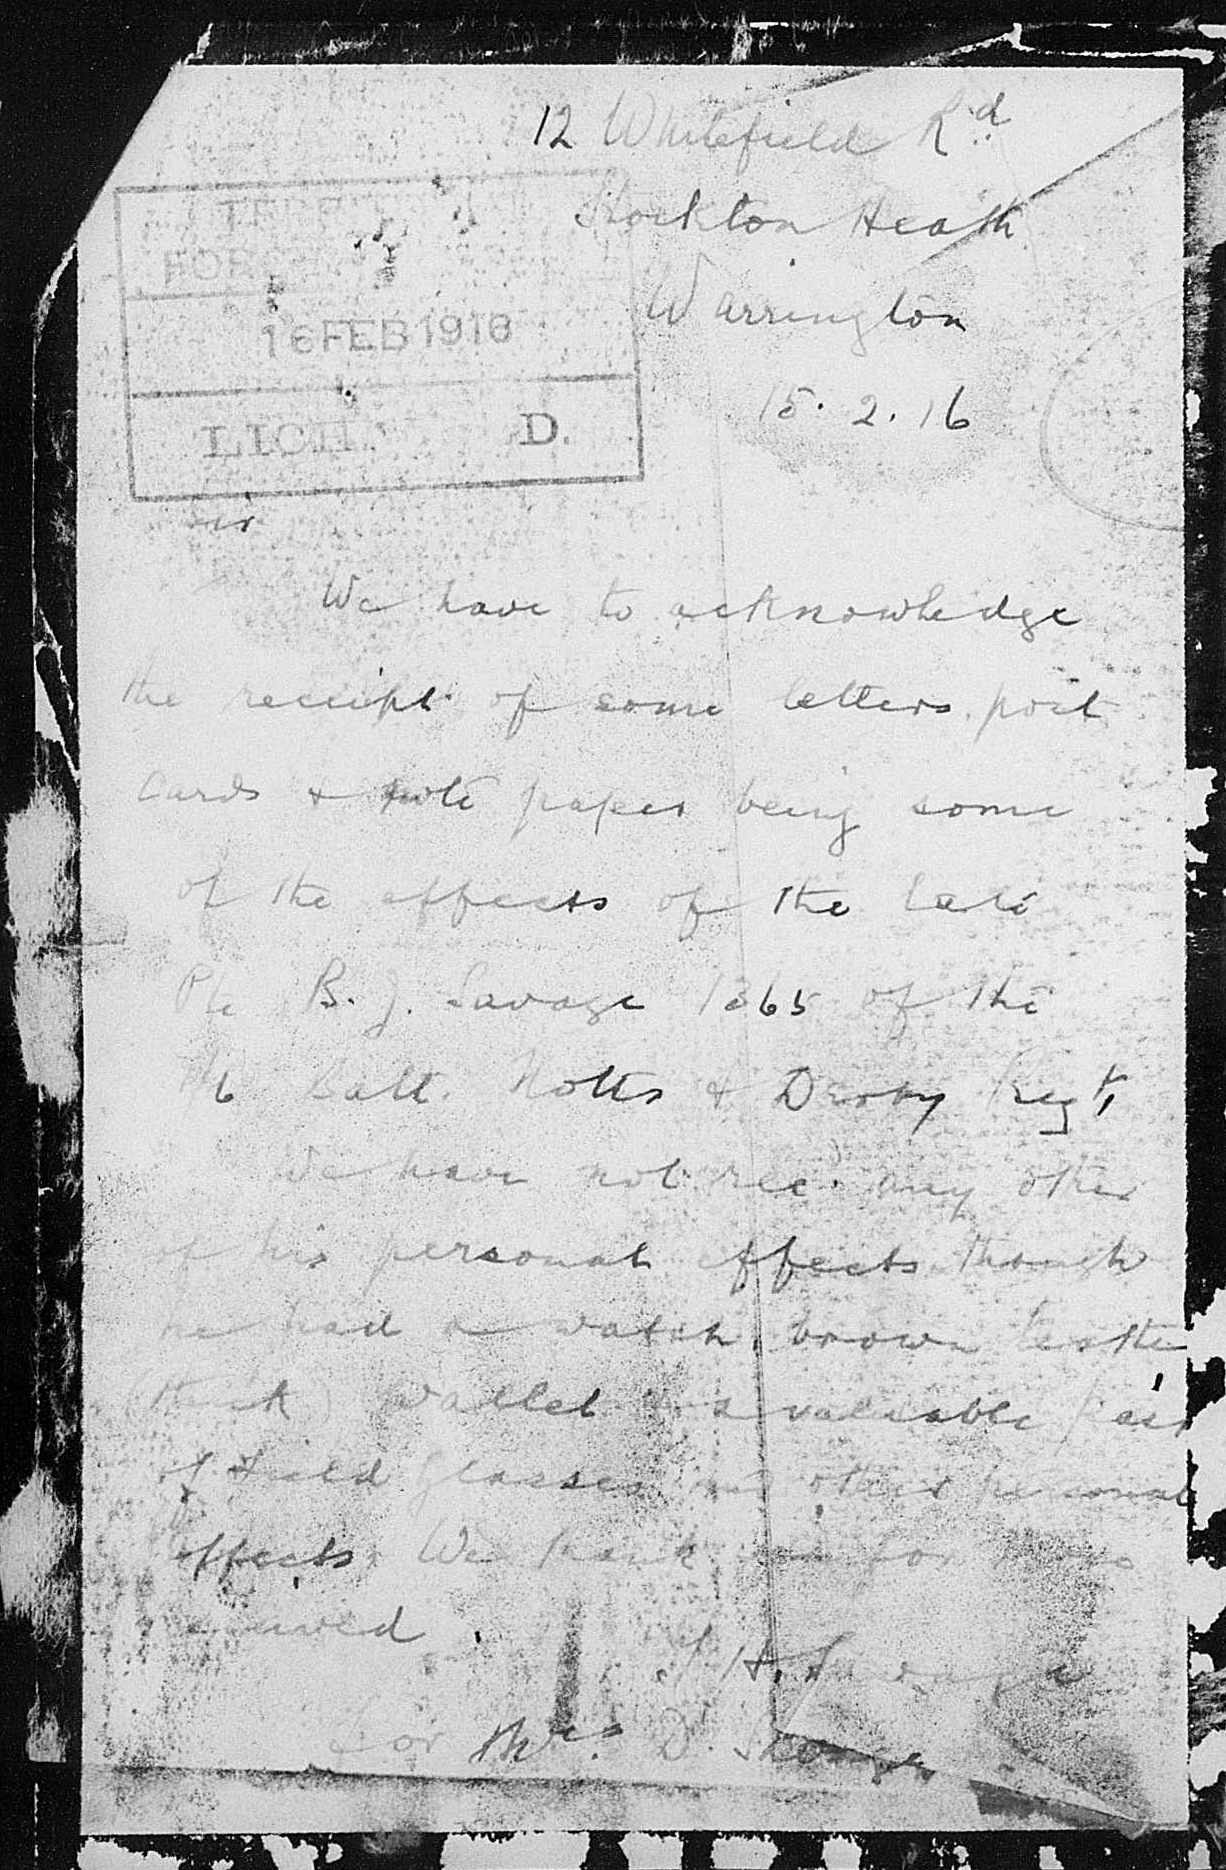 12 Whitefield Rd.
Stockton Heath
Warrington
15. 2. 16
TERRIT
FORCE
16 FEB 1916
LICH D.
Sir
We have to acknowledge
the receipt of some letters, post
cards & note paper being some
of the effects of the late
Pte B. J. Savage 1365 of the
1/6 Batt. Notts & Derby Regt,
We have not rec. any other
of his personal effects though
he had a watch, brown leather
(thick) wallet & a valuable pair
of Field Glasses and other personal
effects. We thank you for those
received.
H. Savage
for Mrs. D.